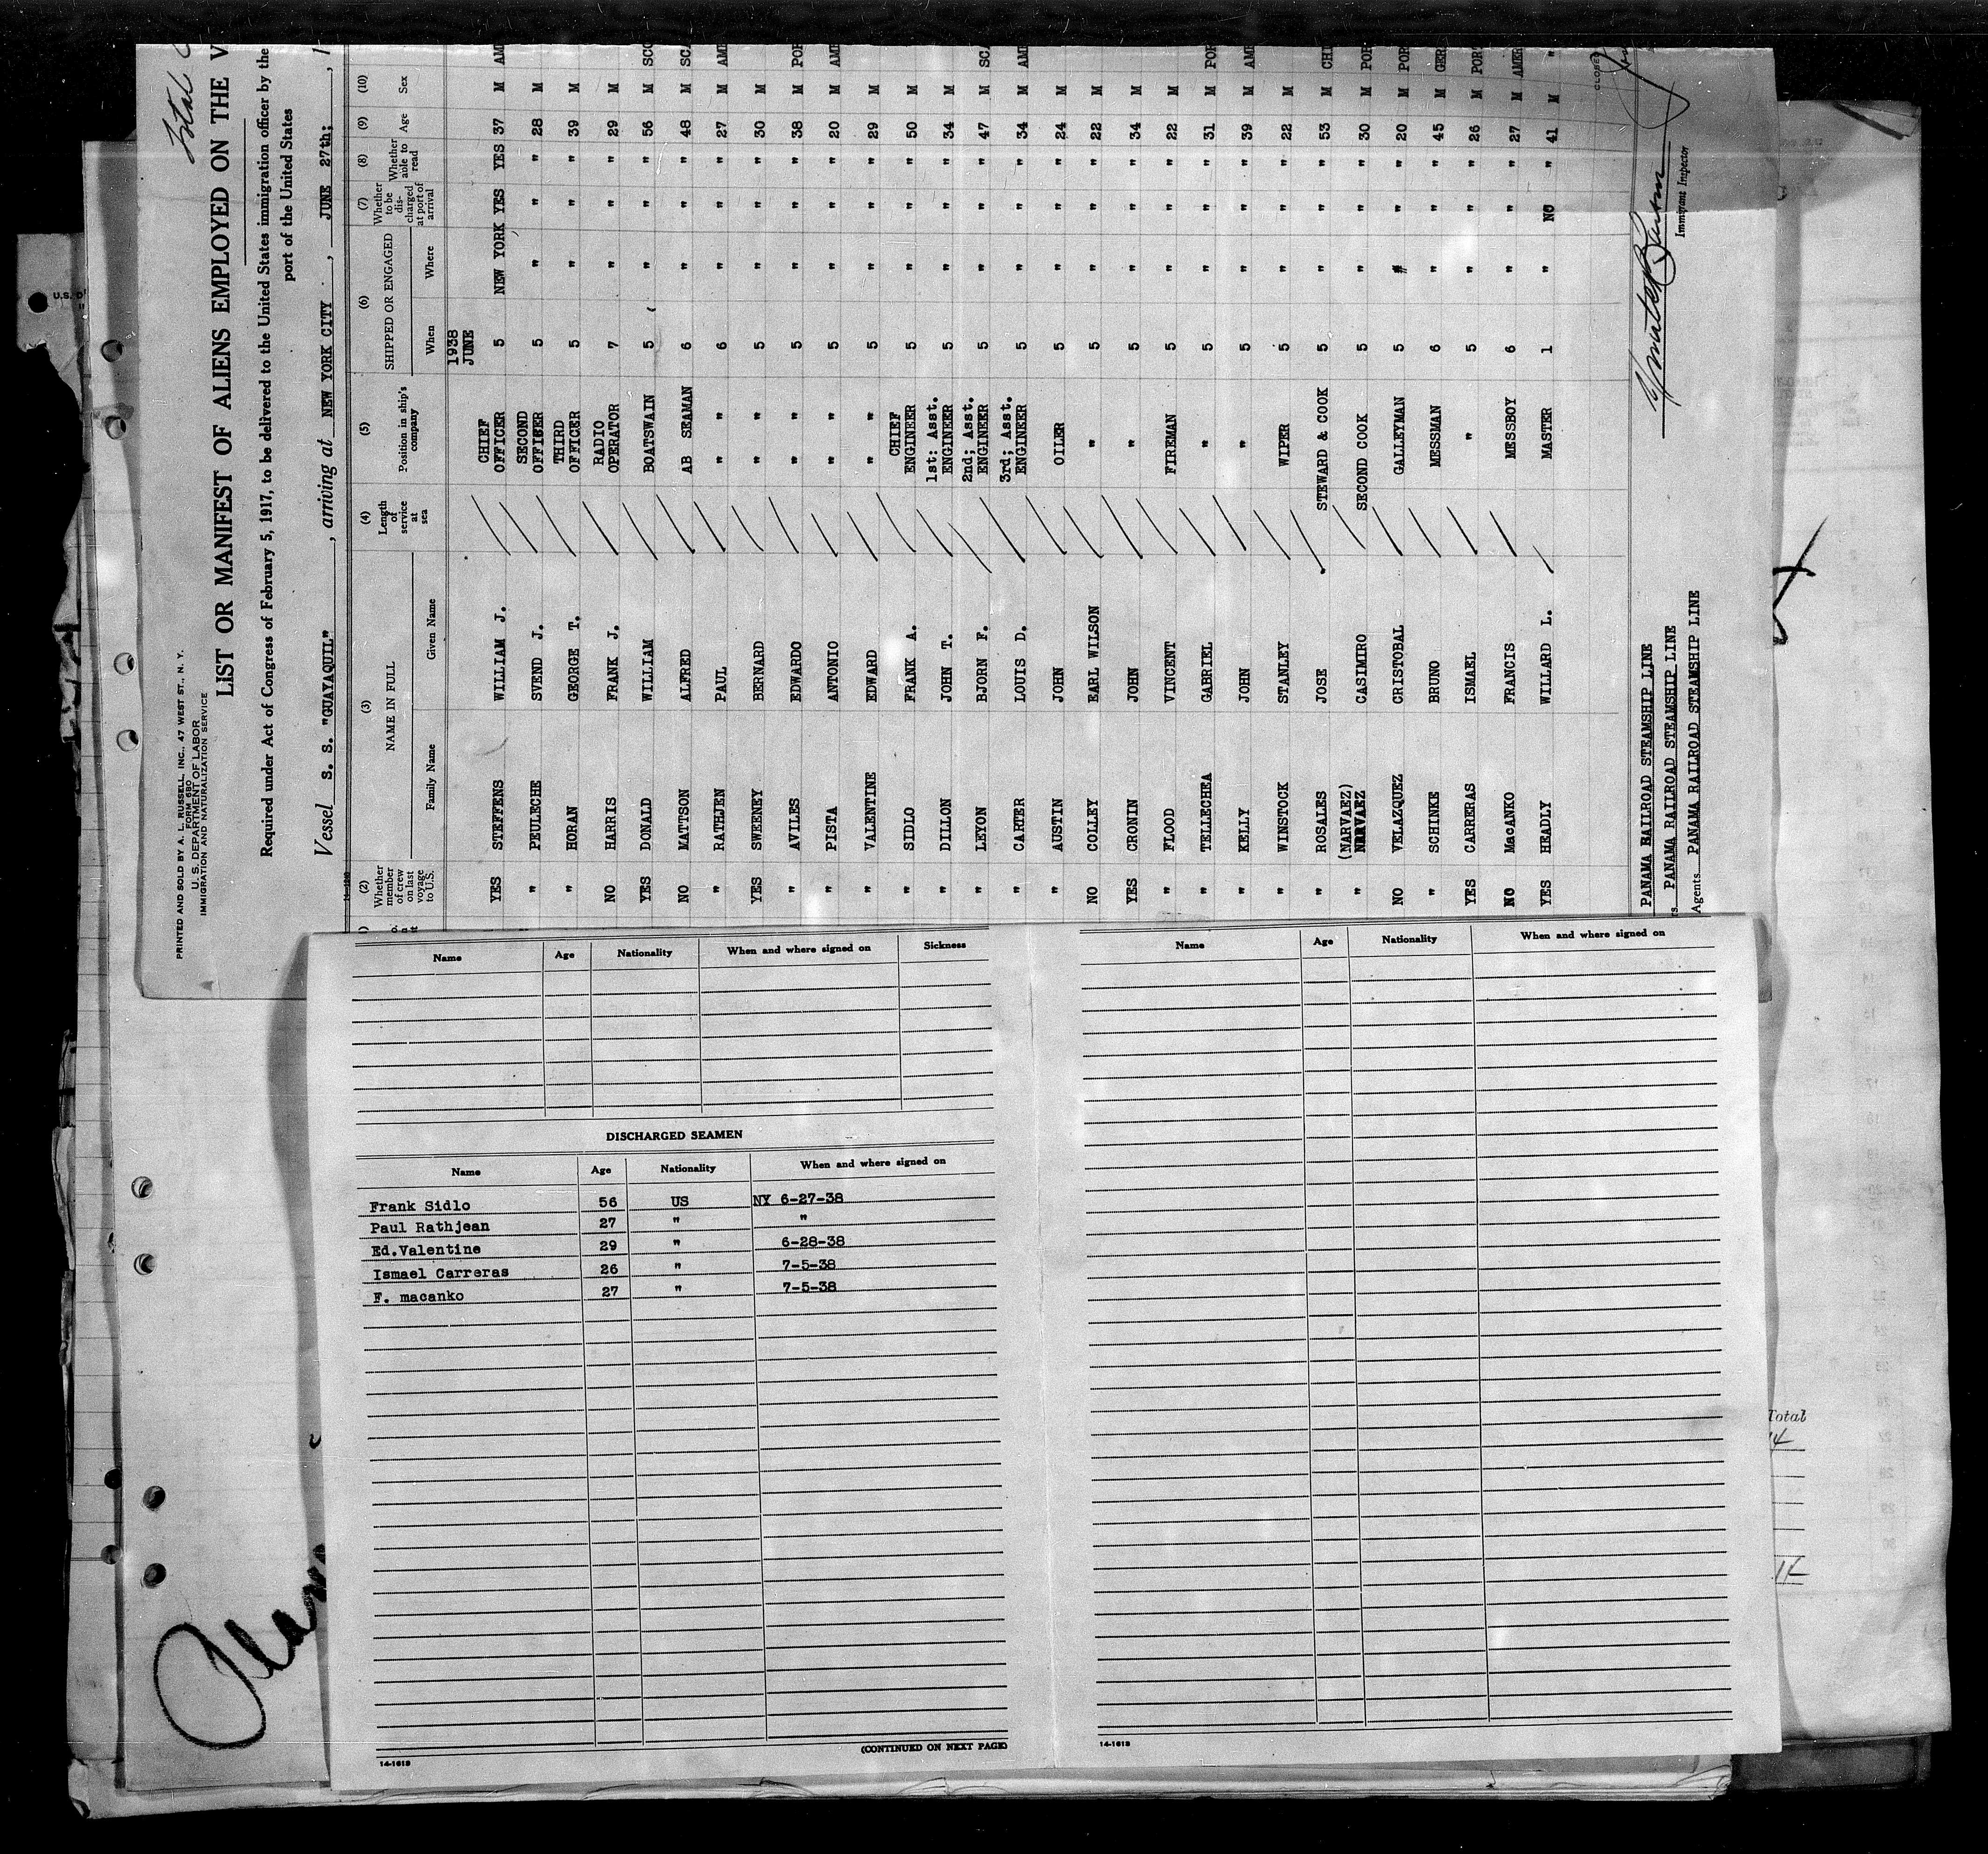 Total
PRINTED AND SOLD BY A. L. RUSSELL, INC., 47 WEST ST., N. Y.
FORM 680
U. S. DEPARTMENT OF LABOR
IMMIGRATION AND NATURALIZATION SERVICE
LIST OR MANIFEST OF ALIENS EMPLOYED ON THE V
Required under Act of Congress of February 5, 1917, to be delivered to the United States immigration officer by the
port of the United States
Vessel S. S. "GUAYAQUIL", arriving at NEW YORK CITY, JUNE 27th;, 1
(2) Whether member of crew on last voyage to U.S. (3) NAME IN FULL Family Name Given Name (4) Length of service at sea (5) Position in ship's company (6) SHIPPED OR ENGAGED When Where (7) Whether to be discharged at port of arrival (8) Whether able to read (9) Age (10) Sex
1938 JUNE
YES STEFFENS WILLIAM J. CHIEF OFFICER 5 NEW YORK YES YES 37 M AM
" PEULECHE SVEND J. SECOND OFFICER 5 " " " 28 M
" HORAN GEORGE T. THIRD OFFICER 5 " " " 39 M
NO HARRIS FRANK J. RADIO OPERATOR 7 " " " 29 M
YES DONALD WILLIAM BOATSWAIN 5 " " " 56 M SCO
NO MATTSON ALFRED AB SEAMAN 6 " " " 48 M SCA
" RATHJEN PAUL " 6 " " " 27 M AME
YES SWEENEY BERNARD " 5 " " " 30 M
" AVILES EDWARDO " 5 " " " 38 M POR
" PISTA ANTONIO " 5 " " " 20 M AME
" VALENTINE EDWARD " 5 " " " 29 M
" SIDLO FRANK A. CHIEF ENGINEER 5 " " " 50 M
" DILLON JOHN T. 1st: Asst. ENGINEER 5 " " " 34 M
" LEYON BJORN F. 2nd; Asst. ENGINEER 5 " " " 47 M SCA
" CARTER LOUIS D. 3rd; Asst. ENGINEER 5 " " " 34 M AME
" AUSTIN JOHN OILER 5 " " " 24 M
NO COLLEY EARL WILSON " 5 " " " 22 M
YES CRONIN JOHN " 5 " " " 34 M
" FLOOD VINCENT FIREMAN 5 " " " 22 M
" TELLECHEA GABRIEL " 5 " " " 31 M POR
" KELLY JOHN " 5 " " " 39 M AME
" WINSTOCK STANLEY WIPER 5 " " " 22 M
" ROSALES JOSE STEWARD & COOK 5 " " " 53 M CHI
" (NARVAEZ) NARVAEZ CASIMIRO SECOND COOK 5 " " " 30 M POR
NO VELAZQUEZ CRISTOBAL GALLEYMAN 5 " " " 20 M POR
" SCHINKE BRUNO MESSMAN 6 " " " 45 M GER
YES CARRERAS ISMAEL " 5 " " " 26 M POR
NO MacANKO FRANCIS MESSBOY 6 " " " 27 M AMER
YES HEADLY WILLARD L. MASTER 1 " NO " 41 M "
CLOSED
PANAMA RAILROAD STEAMSHIP LINE
rs. PANAMA RAILROAD STEAMSHIP LINE
Agents PANAMA RAILROAD STEAMSHIP LINE
Immigrant Inspector
Name Age Nationality When and where signed on Sickness
DISCHARGED SEAMEN
Name Age Nationality When and where signed on
Frank Sidlo 56 US NY 6-27-38
Paul Rathjean 27 " "
Ed.Valentine 29 " 6-28-38
Ismael Carreras 26 " 7-5-38
F. macanko 27 " 7-5-38
(CONTINUED ON NEXT PAGE)
14-1618
Name Age Nationality When and where signed on
14-1618
Total
14
14